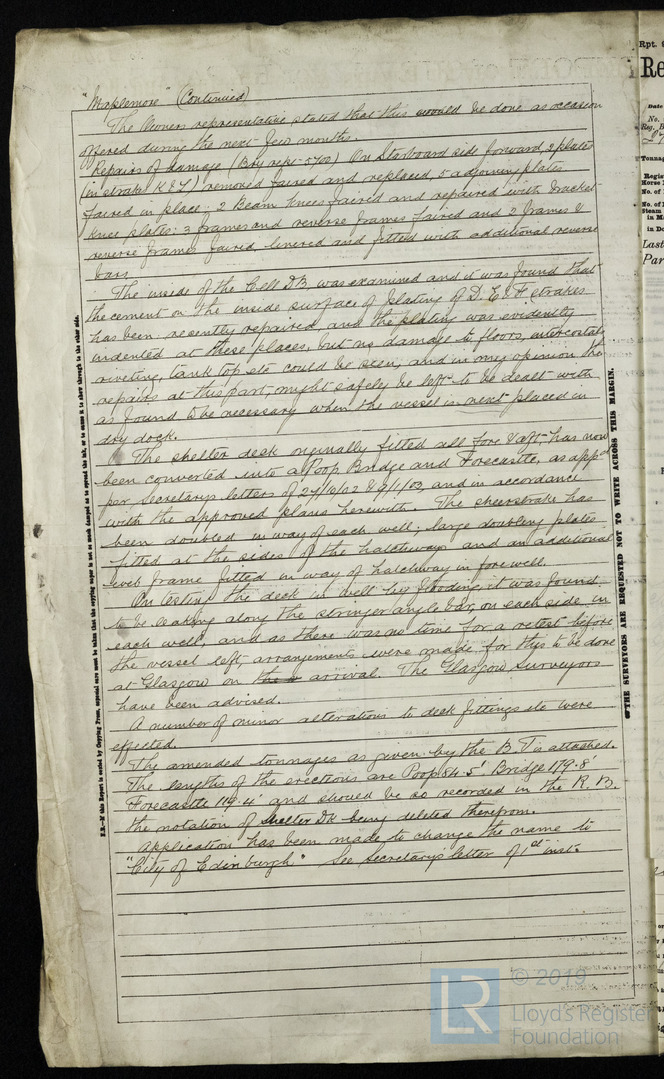 "Maplemore" (Continued)
The Owners representative stated that this would be done as occasion
offered during the next few months.
Repairs of damage (Bry rept 5700) On Starboard side forward, 2 plates
(in strakes K & L) removed faired and replaced, 5 adjoining plates
faired in place: 2 Beam knees faired and repaired with bracket
knee plates: 3 frames and reverse frames faired and 2 frames &
reverse frames faired, linered and fitted with additional reverse
bars
The inside of the Cell D B. was examined and it was found that
the cement on the inside surface of plating of D. E. & F strakes
has been recently repaired and the plating was evidently
indented at these places, but no damage to floors, intercostals
riveting, tank top etc could be seen, and in my opinion the
repairs at this part, might safely be left to be dealt with
as found to be necessary when the vessel is next placed in
dry dock.
The shelter deck originally fitted all fore & aft, has now
been converted into a Poop Bridge and Forecastle, as appd
per Secretarys letters of 27/10/02 & 9/1/03, and in accordance
with the approved plans herewith. The sheerstrake has
been doubled in way of each well; large doubling plates
fitted at the sides of the hatchways and an additional
web frame fitted in way of hatchway in fore well.
On testing the deck in well by flooding, it was found
to be leaking along the stringer angle bar, on each side in
each well, and as there was no time for a retest before
the vessel left, arrangements were made for this to be done
at Glasgow on arrival. The Glasgow Surveyors
have been advised.
A number of minor alterations to deck fittings etc were
effected.
The amended tonnages as given by the B. T. is attached.
The lengths of the erections are Poop 84.5' Bridge 179.8'
Forecastle 119.4' and should be so recorded in the R. B.
the notation of Shelter Dk being deleted therefrom.
Application has been made to change the name to
"City of Edinburgh" See Secretary's letter of 1st inst.
P.R.—If this Report is copied by Copying Press, especial care must be taken that the copying paper is not so much damped as to spread the ink, or to cause it to show through to the other side.
THE SURVEYORS ARE REQUESTED NOT TO WRITE ACROSS THIS MARGIN.
Rpt.
Re
Date
No.
Reg. B
Tonnage
Regist
Horse
No. of
No. of
Steam
in M
in Do
Last
Par
LR
© 2019
Lloyd's Register
Foundation